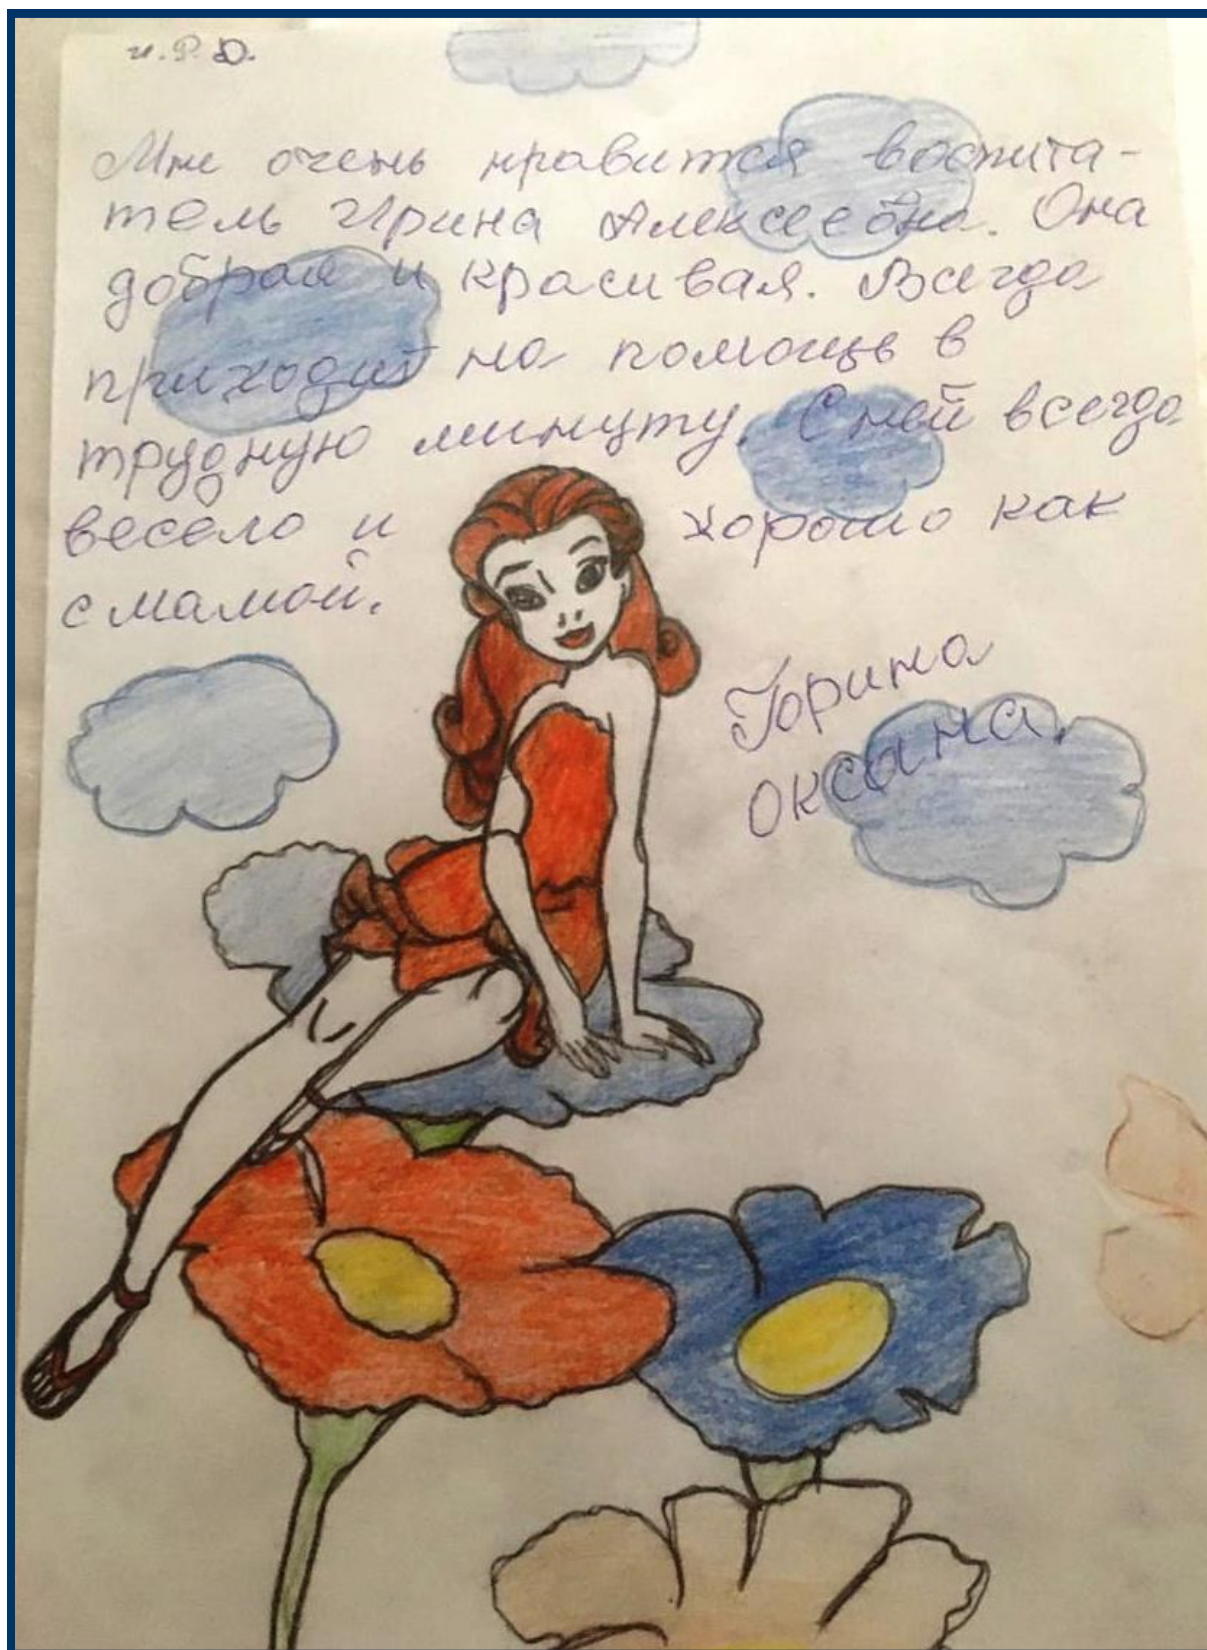 и.Р.О.
Мне очень нравится воспита-
тель Ирина Алексеевна. Она
добрая и красивая. Всегда
приходит на помощь в
трудную минуту. С ней всегда
весело и хорошо как
с мамой.
Горина
Оксана.